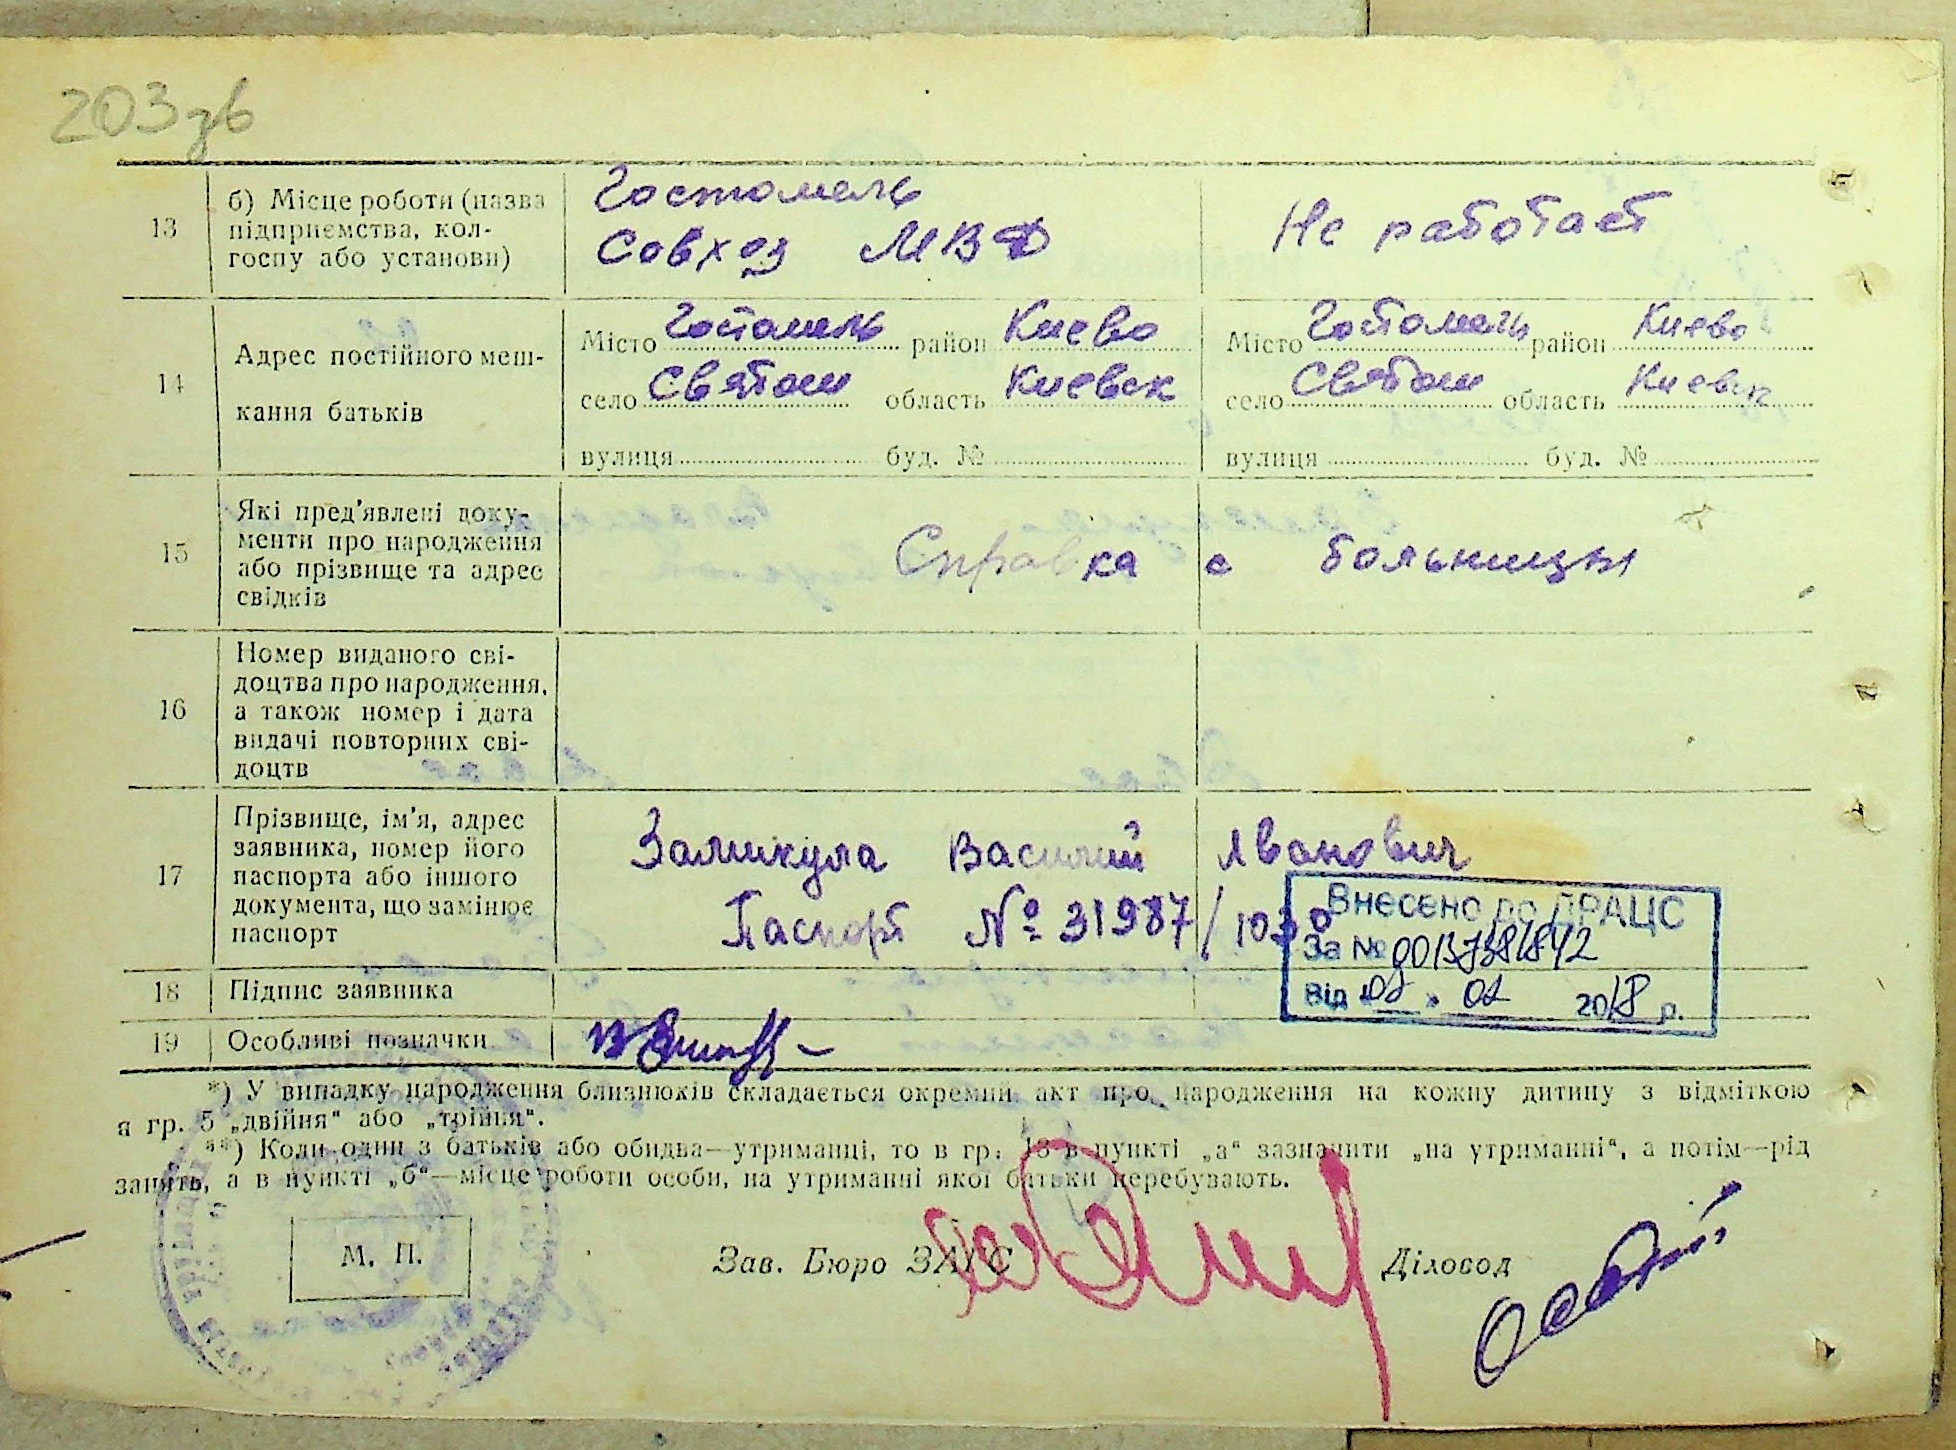 203зв
13 б) Місце роботи (назва підприємства, колгоспу або установи)
Гостомель
Совхоз МВД
Не работает
14 Адрес постійного мешкання батьків
Місто Гостомель район Киево
село Святош область Киевск
вулиця буд. №
Місто Гостомель район Киево
село Святош область Киевск
вулиця буд. №
15 Які пред'явлені документи про народження або прізвище та адрес свідків
Справка с больницы
16 Номер виданого свідоцтва про народження, а також номер і дата видачі повторних свідоцтв
17 Прізвище, ім'я, адрес заявника, номер його паспорта або іншого документа, що замінює паспорт
Замикула Василий Иванович
Паспорт № 31987/1030
Внесено до ДРАЦС
За № 00137381842
Від 2018 р.
18 Підпис заявника
19 Особливі позначки
*) У випадку народження близнюків складається окремий акт про народження на кожну дитину з відміткою
в гр. 5 „двійня“ або „трійня“.
**) Коли один з батьків або обидва—утриманці, то в гр. 13 в пункті „а“ зазначити „на утриманні“, а потім—рід
занять, а в пункті „б“—місце роботи особи, на утриманні якої батьки перебувають.
М. П.
Зав. Бюро ЗАГС
Діловод